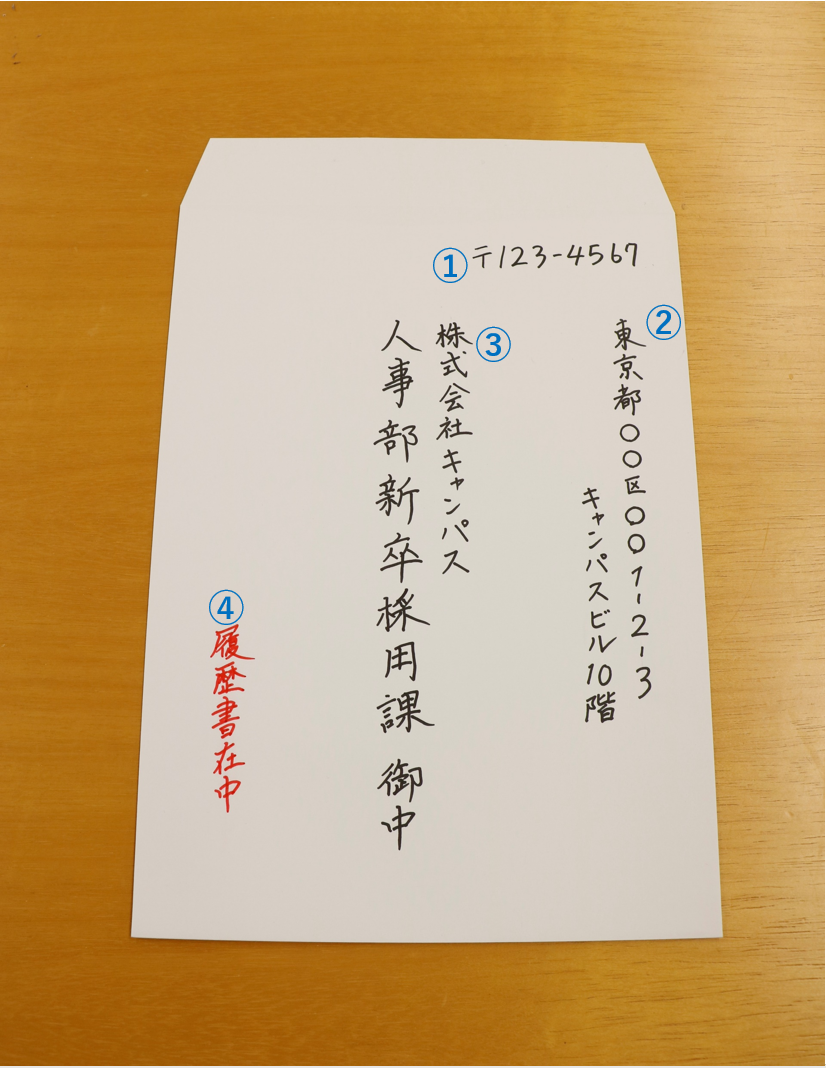 ①〒123-4567
②
東京都〇〇区〇〇1-2-3
キャンパスビル10階
③
株式会社キャンパス
人事部新卒採用課 御中
④
履歴書在中